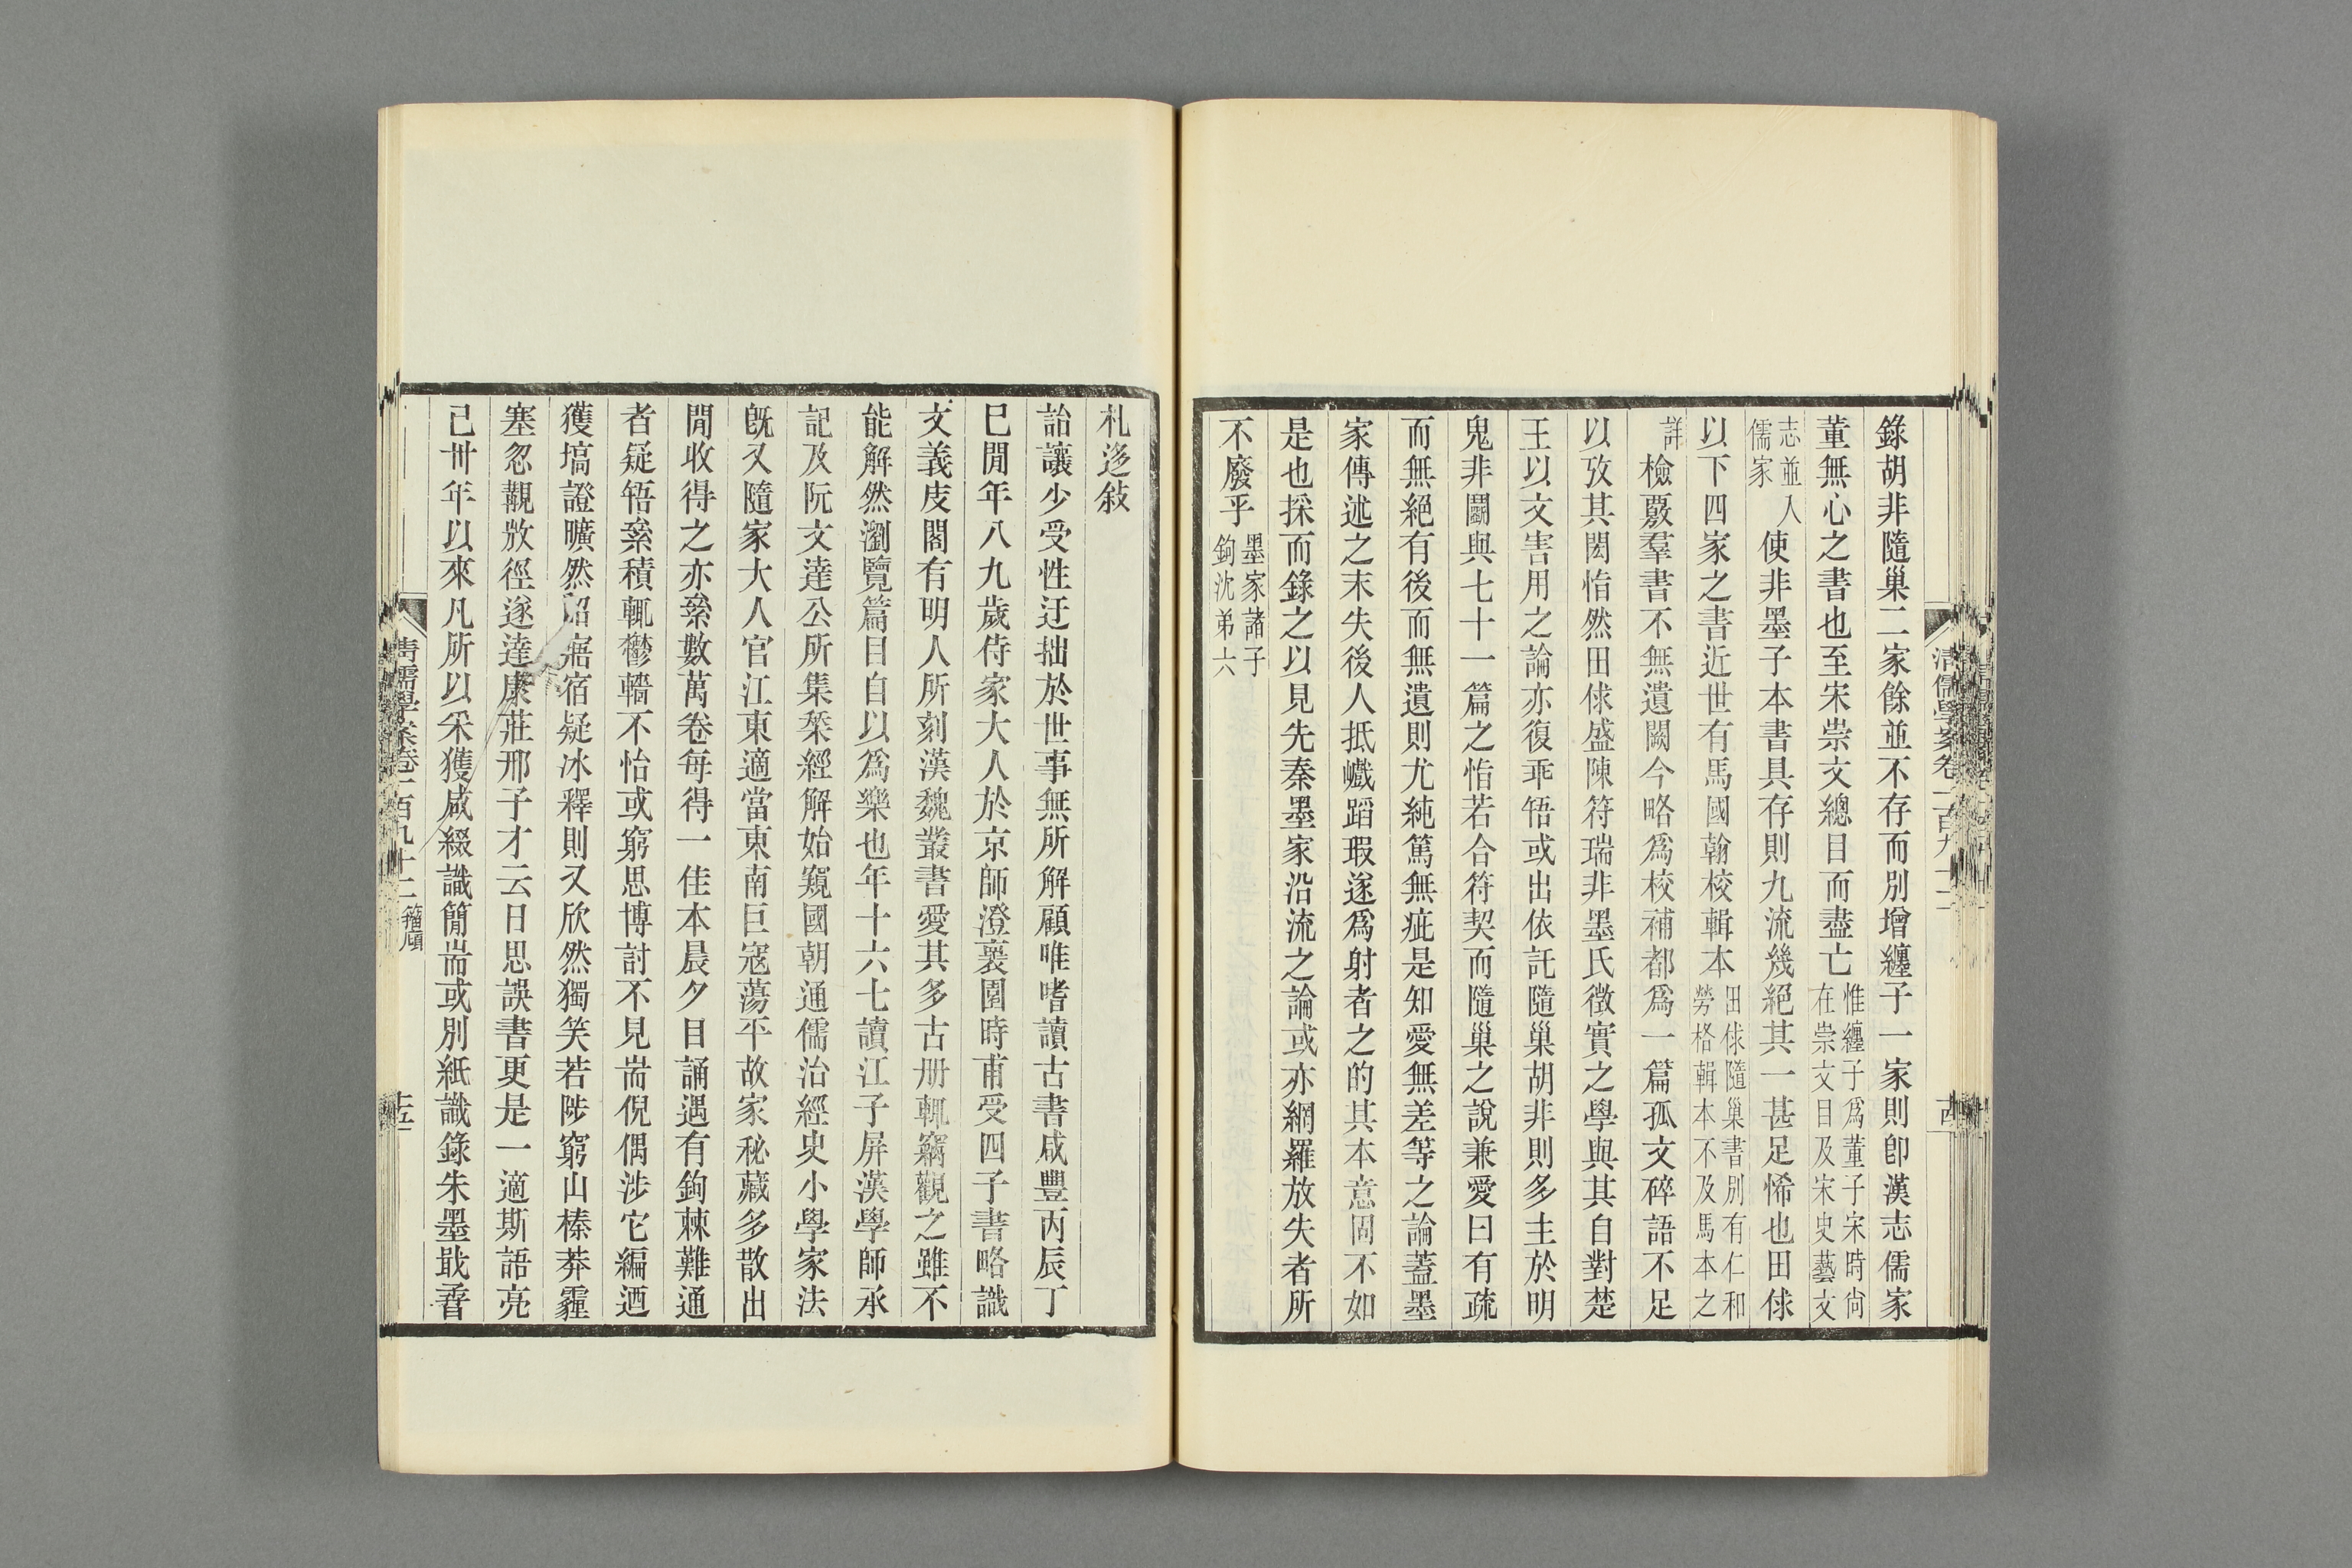 錄胡非隨巢二家餘並不存而別增纏子一家則卽漢志儒家
董無心之書也至宋崇文總目而盡亡惟纏子爲董子宋時尙在崇文目及宋史藝文
志並入儒家使非墨子本書具存則九流幾絕其一甚足悕也田俅
以下四家之書近世有馬國翰校輯本田俅隨巢書別有仁和勞格輯本不及馬本之
詳檢覈羣書不無遺闕今略爲校補都爲一篇孤文碎語不足
以攷其閎恉然田俅盛陳符瑞非墨氏徵實之學與其自對楚
王以文害用之論亦復乖啎或出依託隨巢胡非則多主於明
鬼非鬬與七十一篇之恉若合符契而隨巢之說兼愛曰有疏
而無絕有後而無遺則尤純篤無疵是知愛無差等之論蓋墨
家傳述之末失後人抵巇蹈瑕遂爲射者之的其本意固不如
是也採而錄之以見先秦墨家沿流之論或亦網羅放失者所
不廢乎墨家諸子鉤沈弟六
札迻敍
詒讓少受性迂拙於世事無所解顧唯嗜讀古書咸豐丙辰丁
巳閒年八九歲侍家大人於京師澄褱園時甫受四子書略識
文義庋閣有明人所刻漢魏叢書愛其多古册輒竊觀之雖不
能解然瀏覽篇目自以爲樂也年十六七讀江子屏漢學師承
記及阮文達公所集栞經解始窺國朝通儒治經史小學家法
旣又隨家大人官江東適當東南巨寇蕩平故家秘藏多散出
閒收得之亦絫數萬卷每得一佳本晨夕目誦遇有鉤棘難通
者疑啎絫積輒鬱轖不怡或窮思博討不見耑倪偶涉它編迺
獲塙證曠然昭寤宿疑冰釋則又欣然獨笑若陟窮山榛莽霾
塞忽覯㪚徑遂達康莊邢子才云日思誤書更是一適斯語亮
已卅年以來凡所以采獲咸綴識簡耑或別紙識錄朱墨戢孴
清儒學案卷一百九十二 籀廎